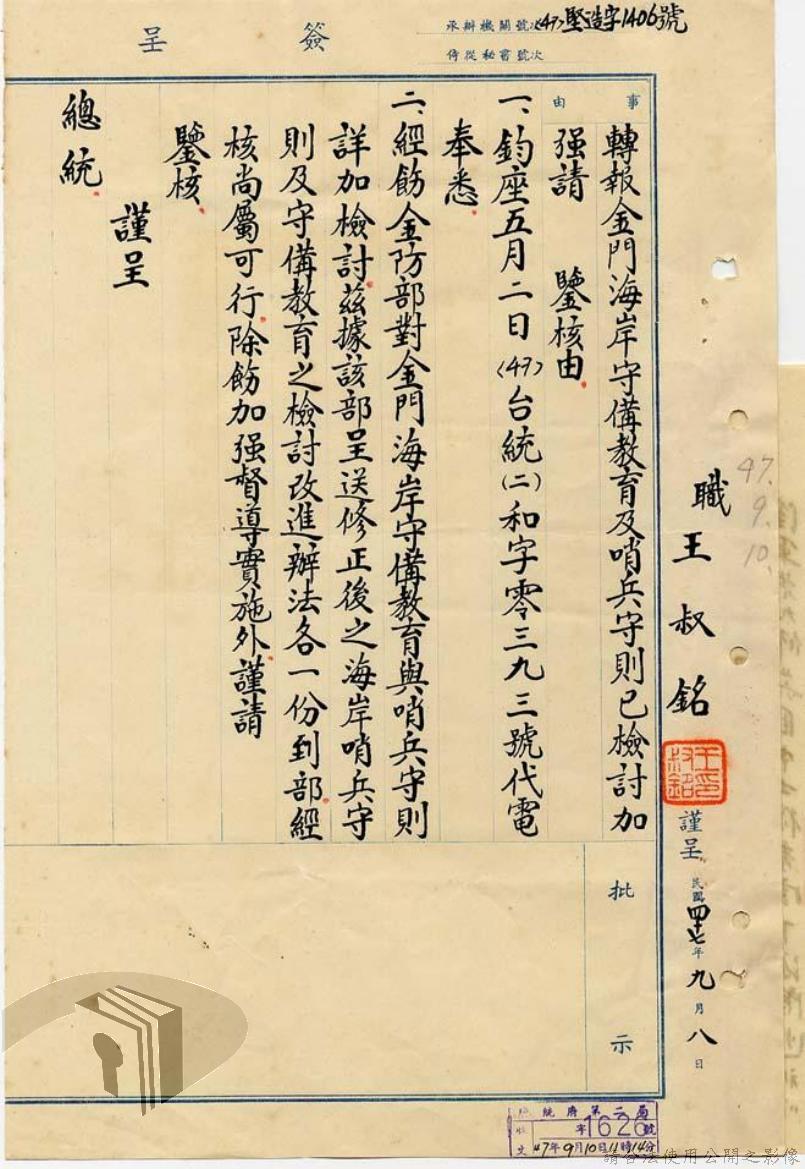 簽呈
承辦機關號次(47)堅造字1406號
侍從秘書號次
職 王叔銘 謹呈 民國四十七年九月八日
王叔銘印
47.9.10.
事由
轉報金門海岸守備教育及哨兵守則已檢討加
強請 鑒核由
一、鈞座五月二日(47)台統(二)和字零三九三號代電
奉悉
二、經飭金防部對金門海岸守備教育與哨兵守則
詳加檢討茲據該部呈送修正後之海岸哨兵守
則及守備教育之檢討改進辦法各一份到部經
核尚屬可行除飭加強督導實施外謹請
鑒核
謹呈
總統
批示
統府第二局
收文 字1626號
47年9月10日11時14分
請合法使用公開之影像